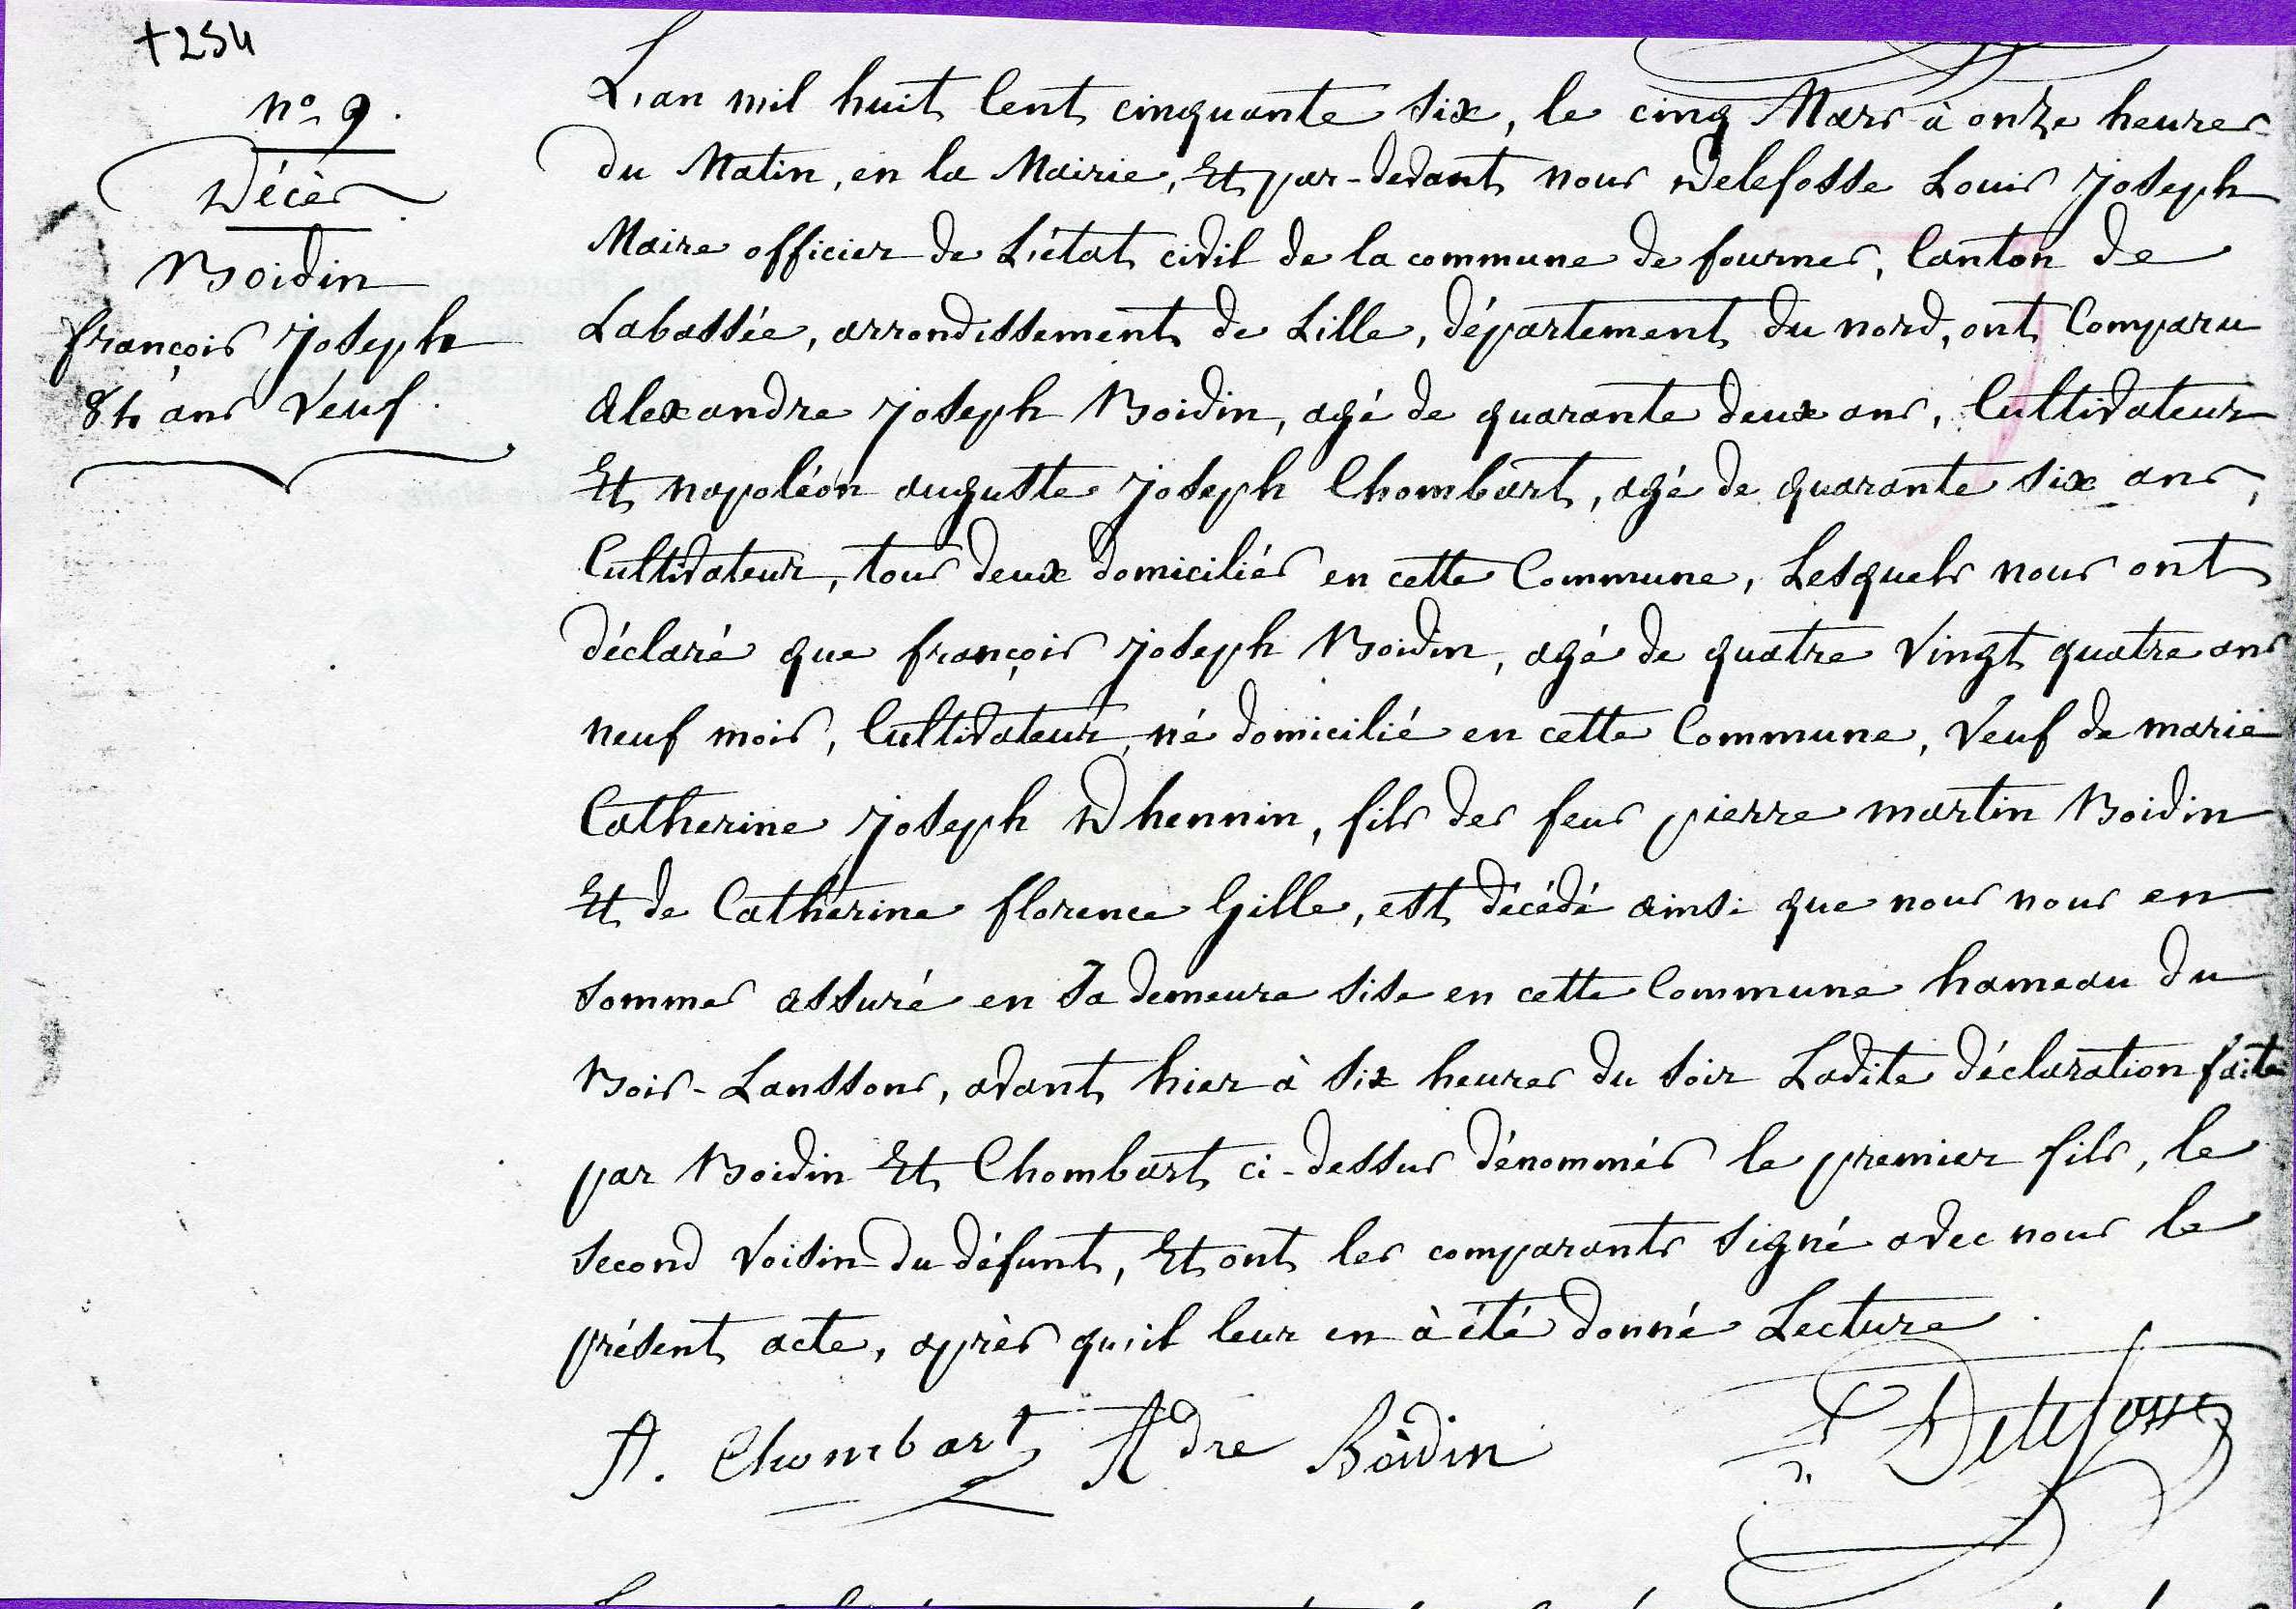 +254
n° 9.
Décès
Boidin
françois joseph
84 ans Veuf.
L'an mil huit Cent cinquante six, le cinq Mars à onze heures
du Matin, en la Mairie, Et par-devant nous Delefosse Louis joseph
Maire officier de L'état civil de la commune de fournes, Canton de
Labassée, arrondissement de Lille, département du nord, ont Comparu
Alexandre joseph Boidin, agé de quarante deux ans, Cultivateur
Et napoléon auguste joseph Chombart, agé de quarante six ans,
Cultivateur, tous deux domiciliés en cette Commune, Lesquels nous ont
déclaré que françois joseph Boidin, agé de quatre Vingt quatre ans
neuf mois, Cultivateur, né domicilié en cette Commune, Veuf de marie
Catherine joseph Dhennin, fils des feus pierre martin Boidin
Et de Catherine florence Gille, est décédé ainsi que nous nous en
sommes assuré en Sa demeure sise en cette Commune hameau du
Bois-Lanssons, avant hier à six heures du soir Ladite déclaration faite
par Boidin Et Chombart ci-dessus dénommés le premier fils, le
second Voisin du défunt, Et ont les comparants signé avec nous le
présent acte, après qu'il leur en à été donné Lecture.
A. Chombart Adre Boidin
Delefosse